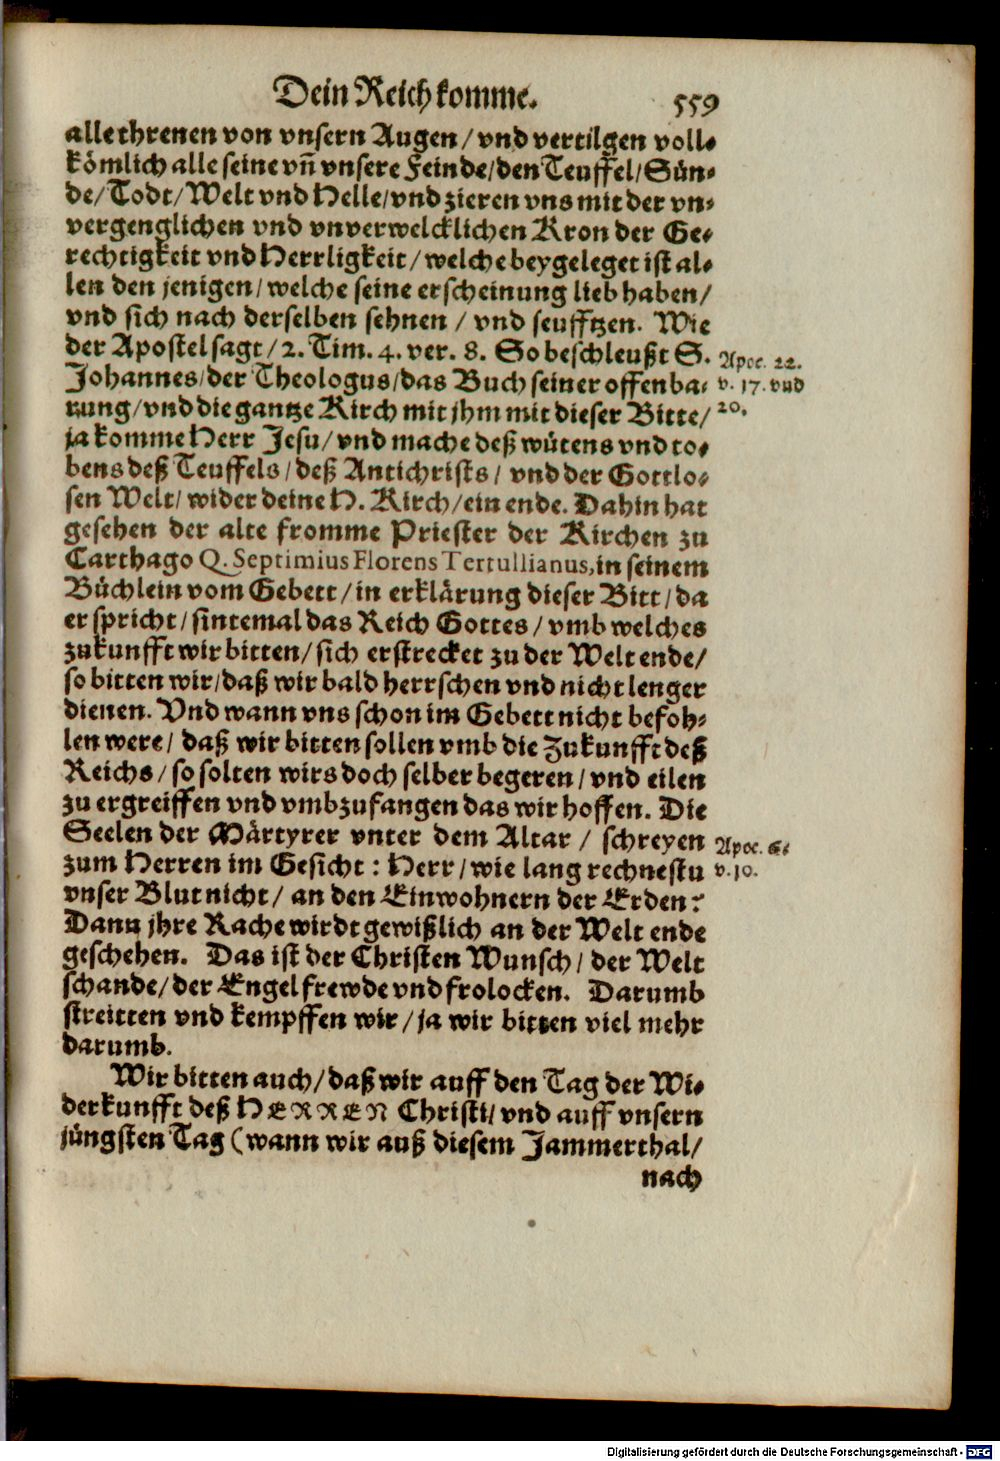 Dein Reich komme. 559
alle threnen von vnsern Augen / vnd vertilgen voll-
kömlich alle seine vñ vnsere Feinde / den Teuffel / Sün-
de / Todt / Welt vnd Helle / vnd zieren vns mit der vn-
vergenglichen vnd vnverwelcklichen Kron der Ge-
rechtigkeit vnd Herrligkeit / welche beygeleget ist al-
len den jenigen / welche seine erscheinung lieb haben /
vnd sich nach derselben sehnen / vnd seufftzen. Wie
der Apostel sagt / 2. Tim. 4. ver. 8. So beschleußt S.
Apoc. 22.
Johannes / der Theologus / das Buch seiner offenba-
v. 17. vnd
rung / vnd die gantze Kirch mit jhm mit dieser Bitte /
20.
ja komme Herr Jesu / vnd mache deß wütens vnd to-
bens deß Teuffels / deß Antichrists / vnd der Gottlo-
sen Welt / wider deine H. Kirch / ein ende. Dahin hat
gesehen der alte fromme Priester der Kirchen zu
Carthago Q. Septimius Florens Tertullianus, in seinem
Büchlein vom Gebett / in erklärung dieser Bitt / da
er spricht / sintemal das Reich Gottes / vmb welches
zukunfft wir bitten / sich erstrecket zu der Welt ende /
so bitten wir / daß wir bald herrschen vnd nicht lenger
dienen. Vnd wann vns schon im Gebett nicht befoh-
len were / daß wir bitten sollen vmb die Zukunfft deß
Reichs / so solten wirs doch selber begeren / vnd eilen
zu ergreiffen vnd vmbzufangen das wir hoffen. Die
Seelen der Märtyrer vnter dem Altar / schreyen
Apoc. 6.
zum Herren im Gesicht : Herr / wie lang rechnestu
v. 10.
vnser Blut nicht / an den Einwohnern der Erden?
Dann jhre Rache wirdt gewißlich an der Welt ende
geschehen. Das ist der Christen Wunsch / der Welt
schande / der Engel frewde vnd frolocken. Darumb
streitten vnd kempffen wir / ja wir bitten viel mehr
darumb.
Wir bitten auch / daß wir auff den Tag der Wi-
derkunfft deß HERREN Christi / vnd auff vnsern
jüngsten Tag (wann wir auß diesem Jammerthal /
nach
Digitalisierung gefördert durch die Deutsche Forschungsgemeinschaft - DFG